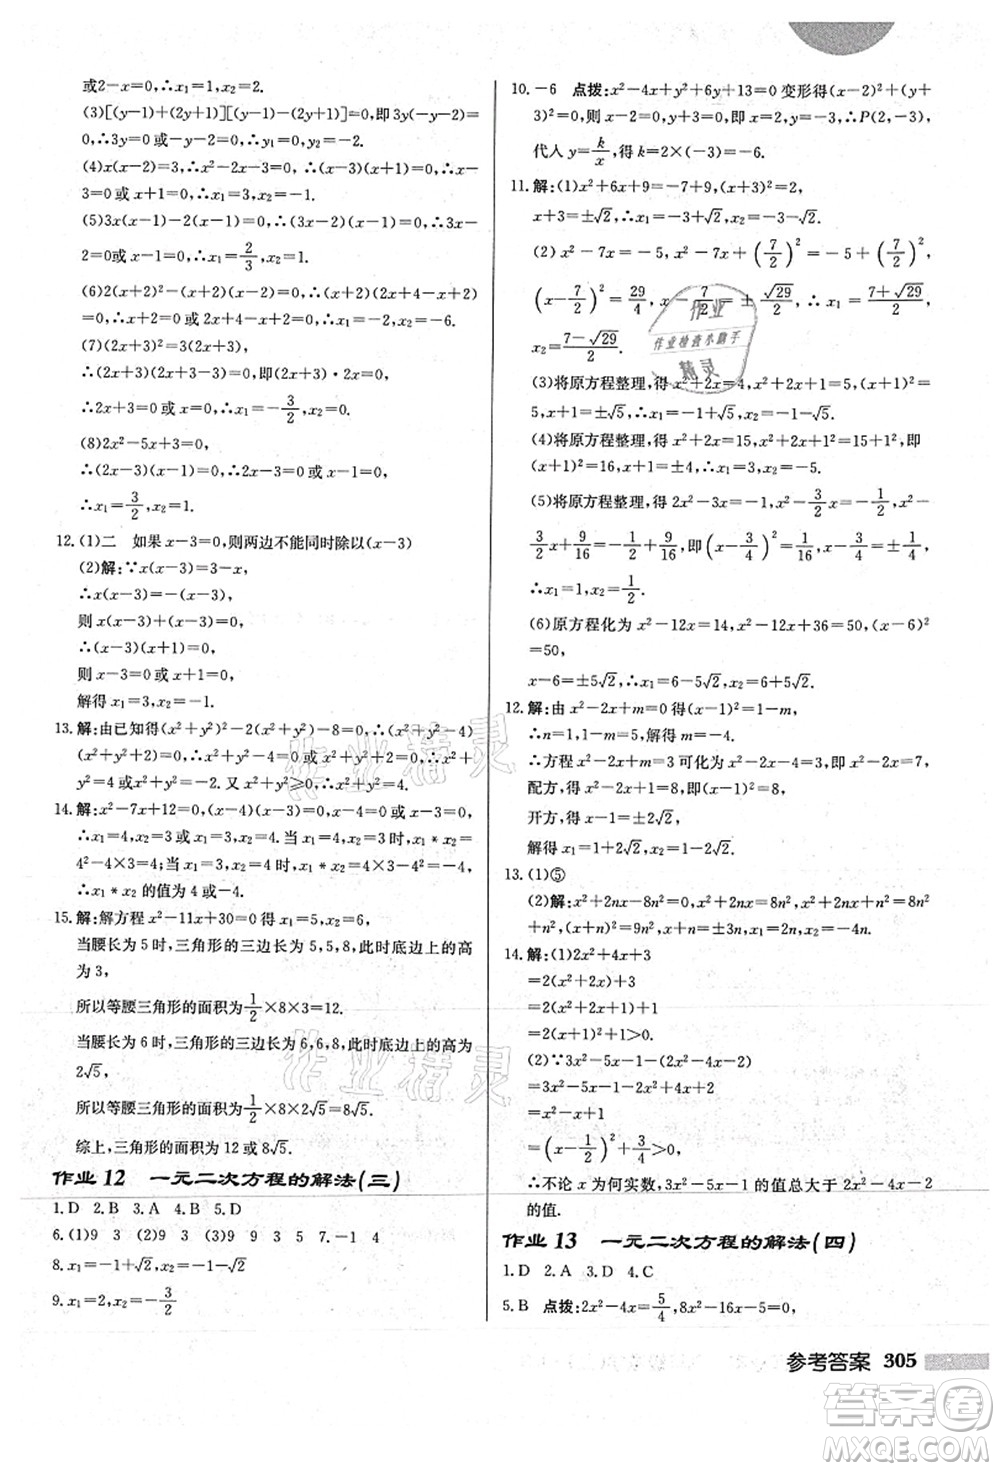 或2-x=0,∴x₁=1,x₂=2.
(3)[(y-1)+(2y+1)][(y-1)-(2y+1)]=0,即3y(-y-2)=0,
∴3y=0或-y-2=0,∴y₁=0,y₂=-2.
(4)x(x-2)=3,∴x²-2x-3=0,∴(x-3)(x+1)=0,
∴x-3=0或x+1=0,∴x₁=3,x₂=-1.
(5)3x(x-1)-2(x-1)=0,∴(3x-2)(x-1)=0,∴3x-
2=0或x-1=0,∴x₁=2/3,x₂=1.
(6)2(x+2)²-(x+2)(x-2)=0,∴(x+2)(2x+4-x+2)
=0,∴x+2=0或2x+4-x+2=0,∴x₁=-2,x₂=-6.
(7)(2x+1)²-3(2x+1)+2=0,
∴(2x+1-1)(2x+1-2)=0,
∴2x+3=0或x=0,∴x₁=-3/2,x₂=0.
(8)2x²-5x+3=0,
∴(2x-3)(x-1)=0,∴2x-3=0或x-1=0,
∴x₁=3/2,x₂=1.
12.(1)二 如果x-3=0,则两边不能同时除以(x-3)
(2)解:∵x(x-3)=3-x,
∴x(x-3)=-(x-3),
则x(x-3)+(x-3)=0,
∴(x-3)(x+1)=0,
则x-3=0或x+1=0,
解得x₁=3,x₂=-1.
13.解:由已知得(x²+y²)²-2(x²+y²)-8=0,∴(x²+y²-4)
(x²+y²+2)=0,∴x²+y²-4=0或x²+y²+2=0,∴x²+
y²=4或x²+y²=-2.又x²+y²≥0,∴x²+y²=4.
14.解:x²-7x+12=0,(x-4)(x-3)=0,x-4=0或x-3=0,
∴x₁=4,x₂=3或x₁=3,x₂=4.当x₁=4,x₂=3时,x₁*x₂=
4²-4×3=4;当x₁=3,x₂=4时,x₁*x₂=3×4-4²=-4,
∴x₁*x₂的值为4或-4.
15.解:解方程x²-11x+30=0得x₁=5,x₂=6,
当腰长为5时,三角形的三边长为5,5,8,此时底边上的高
为3,
所以等腰三角形的面积为1/2×8×3=12.
当腰长为6时,三角形的三边长为6,6,8,此时底边上的高为
2√5,
所以三角形的面积为1/2×8×2√5=8√5.
综上,三角形的面积为12或8√5.
作业12 一元二次方程的解法(三)
1.D 2.B 3.A 4.B 5.D
6.(1)9 3 (2)9 3 (3)9 3 9 3 7.-1 4
8.x₁=-1+√2,x₂=-1-√2
9.x₁=2,x₂=-3/2
10.-6 点拨:x²-4x+y²+6y+13=0变形得(x-2)²+(y+
3)²=0,即x-2=0,y+3=0,则x=2,y=-3,∴P(2,-3),
代入y=k/x,得k=2×(-3)=-6.
11.解:(1)x²+6x+9=-7+9,(x+3)²=2,
x+3=±√2,∴x₁=-3+√2,x₂=-3-√2.
(2)x²-7x=-5,x²-7x+(7/2)²=-5+(7/2)²,
(x-7/2)²=29/4,x-7/2=±√29/2,∴x₁=(7+√29)/2,
x₂=(7-√29)/2.
(3)将原方程整理,得x²+2x=4,x²+2x+1²=4+1²,(x+1)²=
5,x+1=±√5,∴x₁=-1+√5,x₂=-1-√5.
(4)将原方程整理,得x²+2x=15,x²+2x+1²=15+1²,
(x+1)²=16,x+1=±4,∴x₁=3,x₂=-5.
(5)将原方程整理,得2x²-3x=-1,x²-3/2x=-1/2,x²-
3/2x+9/16=-1/2+9/16,即(x-3/4)²=1/16,x-3/4=±1/4,
∴x₁=1,x₂=1/2.
(6)原方程化为x²-12x=14,x²-12x+36=50,(x-6)²
=50,
x-6=±5√2,∴x₁=6+5√2,x₂=6-5√2.
12.解:由x²-2x+m=0得(x-1)²=1-m,
∴n=1,1-m=5,解得m=-4.
∴方程x²-2x+m=3可化为x²-2x-4=3,即x²-2x=7,
配方,得x²-2x+1=8,即(x-1)²=8,
开方,得x-1=±2√2,
解得x₁=1+2√2,x₂=1-2√2.
13.(1)⑤
(2)解:x²+2nx-8n²=0,x²+2nx=8n²,x²+2nx+n²=8n²
+n²,(x+n)²=9n²,x+n=±3n,x₁=2n,x₂=-4n.
14.解:(1)2x²+4x+3
=2(x²+2x)+3
=2(x²+2x+1)+1
=2(x+1)²+1>0.
(2)∵3x²-5x-1-(2x²-4x-2)
=3x²-5x-1-2x²+4x+2
=x²-x+1
=(x-1/2)²+3/4>0,
∴不论x为何实数,3x²-5x-1的值总大于2x²-4x-2
的值.
作业13 一元二次方程的解法(四)
1.D 2.A 3.D 4.C
5.B 点拨:2x²-4x=5/4,8x²-16x-5=0,
参考答案 305
作业
作业检查小助手
精灵
作业精灵
作业精灵
答案圈
MXQE.COM